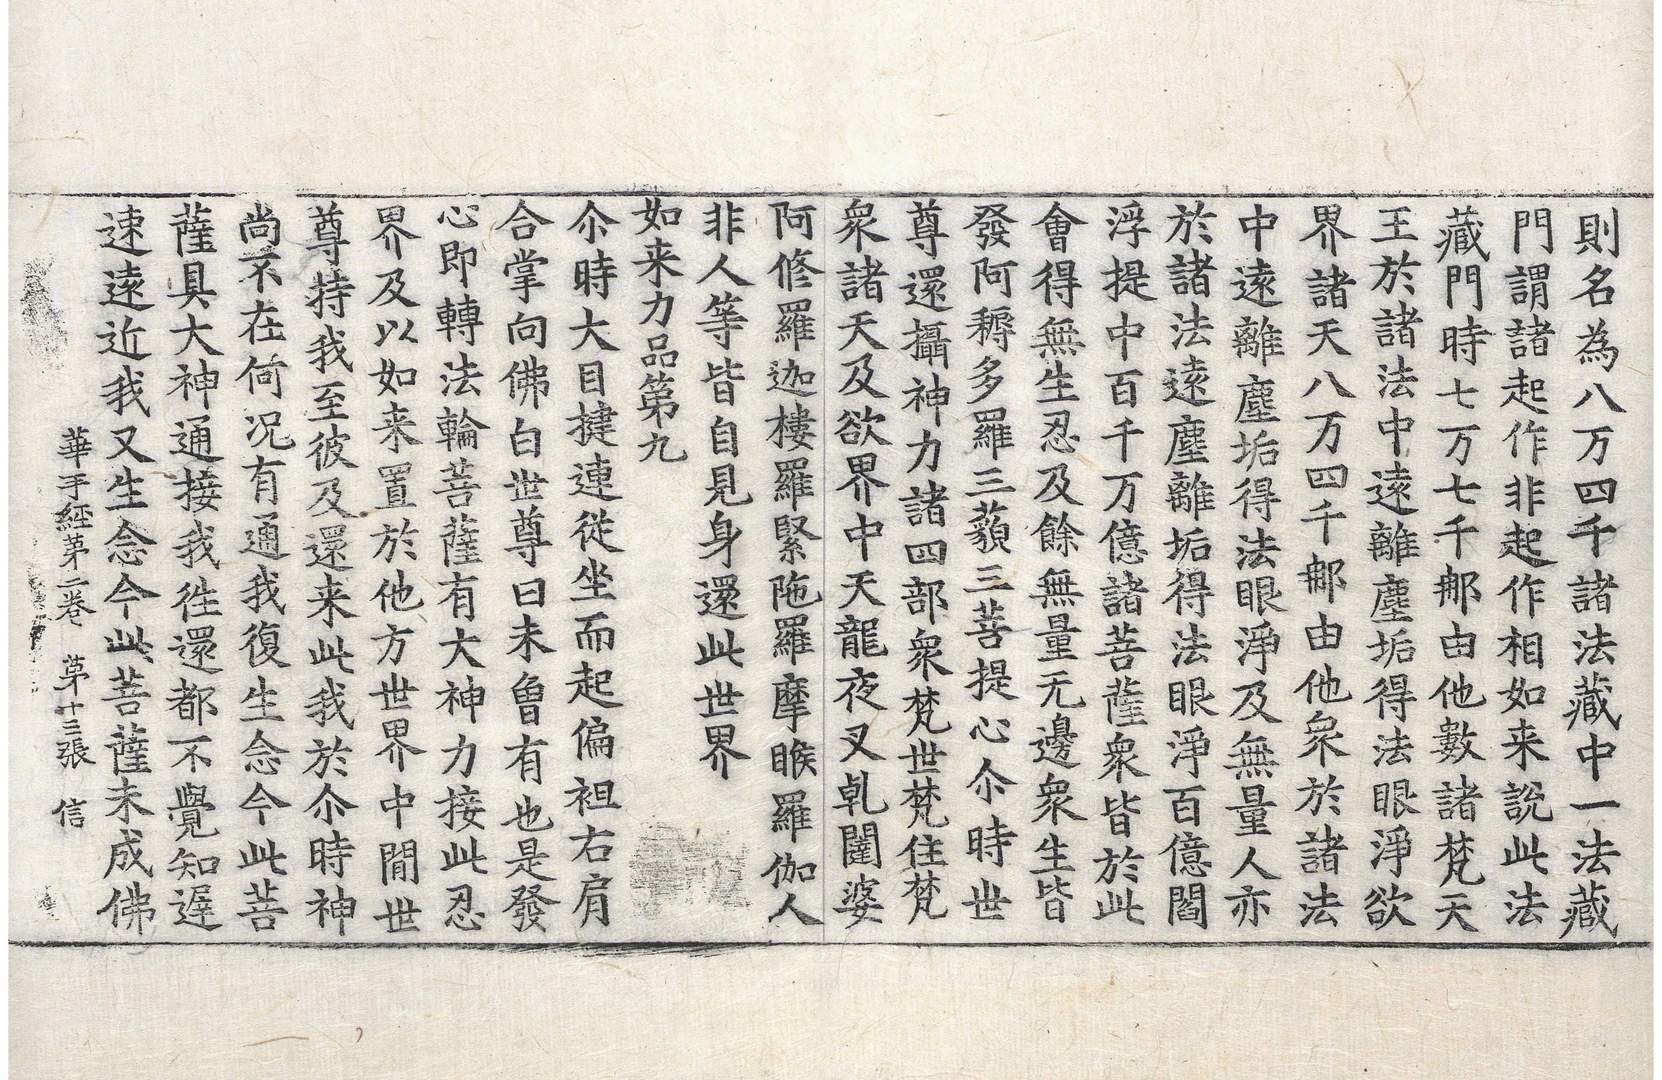 則名為八万四千諸法藏中一法藏
門謂諸起作非起作相如来說此法
藏門時七万七千那由他數諸梵天
王於諸法中遠離塵垢得法眼淨欲
界諸天八万四千那由他衆於諸法
中遠離塵垢得法眼淨及無量人亦
於諸法遠塵離垢得法眼淨百億閻
浮提中百千万億諸菩薩衆皆於此
會得無生忍及餘無量无邊衆生皆
發阿耨多羅三藐三菩提心尒時世
尊還攝神力諸四部衆梵世梵住梵
衆諸天及欲界中天龍夜叉乹闥婆
阿修羅迦樓羅緊陁羅摩睺羅伽人
非人等皆自見身還此世界
如来力品第九
尒時大目揵連從坐而起偏袒右肩
合掌向佛白世尊曰未曾有也是發
心即轉法輪菩薩有大神力接此忍
界及以如来置於他方世界中閒世
尊持我至彼及還来此我於尒時神
尚不在何况有通我復生念今此菩
薩具大神通接我徃還都不覺知遲
速遠近我又生念今此菩薩未成佛
華手經第二卷 第十三張 信